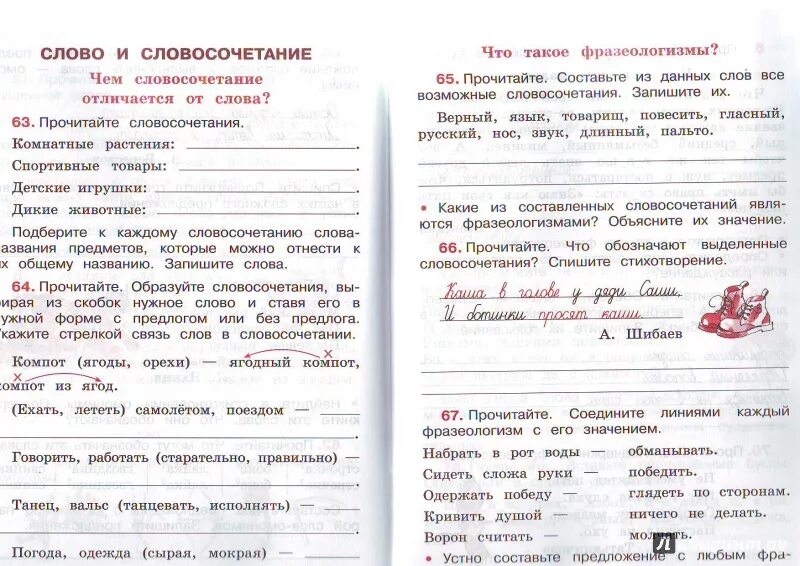 СЛОВО И СЛОВОСОЧЕТАНИЕ
Чем словосочетание
отличается от слова?
63. Прочитайте словосочетания.
Комнатные растения:
Спортивные товары:
Детские игрушки:
Дикие животные:
Подберите к каждому словосочетанию слова-
названия предметов, которые можно отнести к
их общему названию. Запишите слова.
64. Прочитайте. Образуйте словосочетания, вы-
бирая из скобок нужное слово и ставя его в
нужной форме с предлогом или без предлога.
Укажите стрелкой связь слов в словосочетании.
Компот (ягоды, орехи) — ягодный компот,
компот из ягод.
(Ехать, лететь) самолётом, поездом —
Говорить, работать (старательно, правильно) —
Танец, вальс (танцевать, исполнять)
Погода, одежда (сырая, мокрая) —
Что такое фразеологизмы?
65. Прочитайте. Составьте из данных слов все
возможные словосочетания. Запишите их.
Верный, язык, товарищ, повесить, гласный,
русский, нос, звук, длинный, пальто.
• Какие из составленных словосочетаний явля-
ются фразеологизмами? Объясните их значение.
66. Прочитайте. Что обозначают выделенные
словосочетания? Спишите стихотворение.
Каша в голове у дяди Саши,
И ботинки просят каши.
А. Шибаев
67. Прочитайте. Соедините линиями каждый
фразеологизм с его значением.
Набрать в рот воды — обманывать.
Сидеть сложа руки — победить.
Одержать победу — глядеть по сторонам.
Кривить душой — ничего не делать.
Ворон считать — молчать.
• Устно составьте предложение с любым фра-